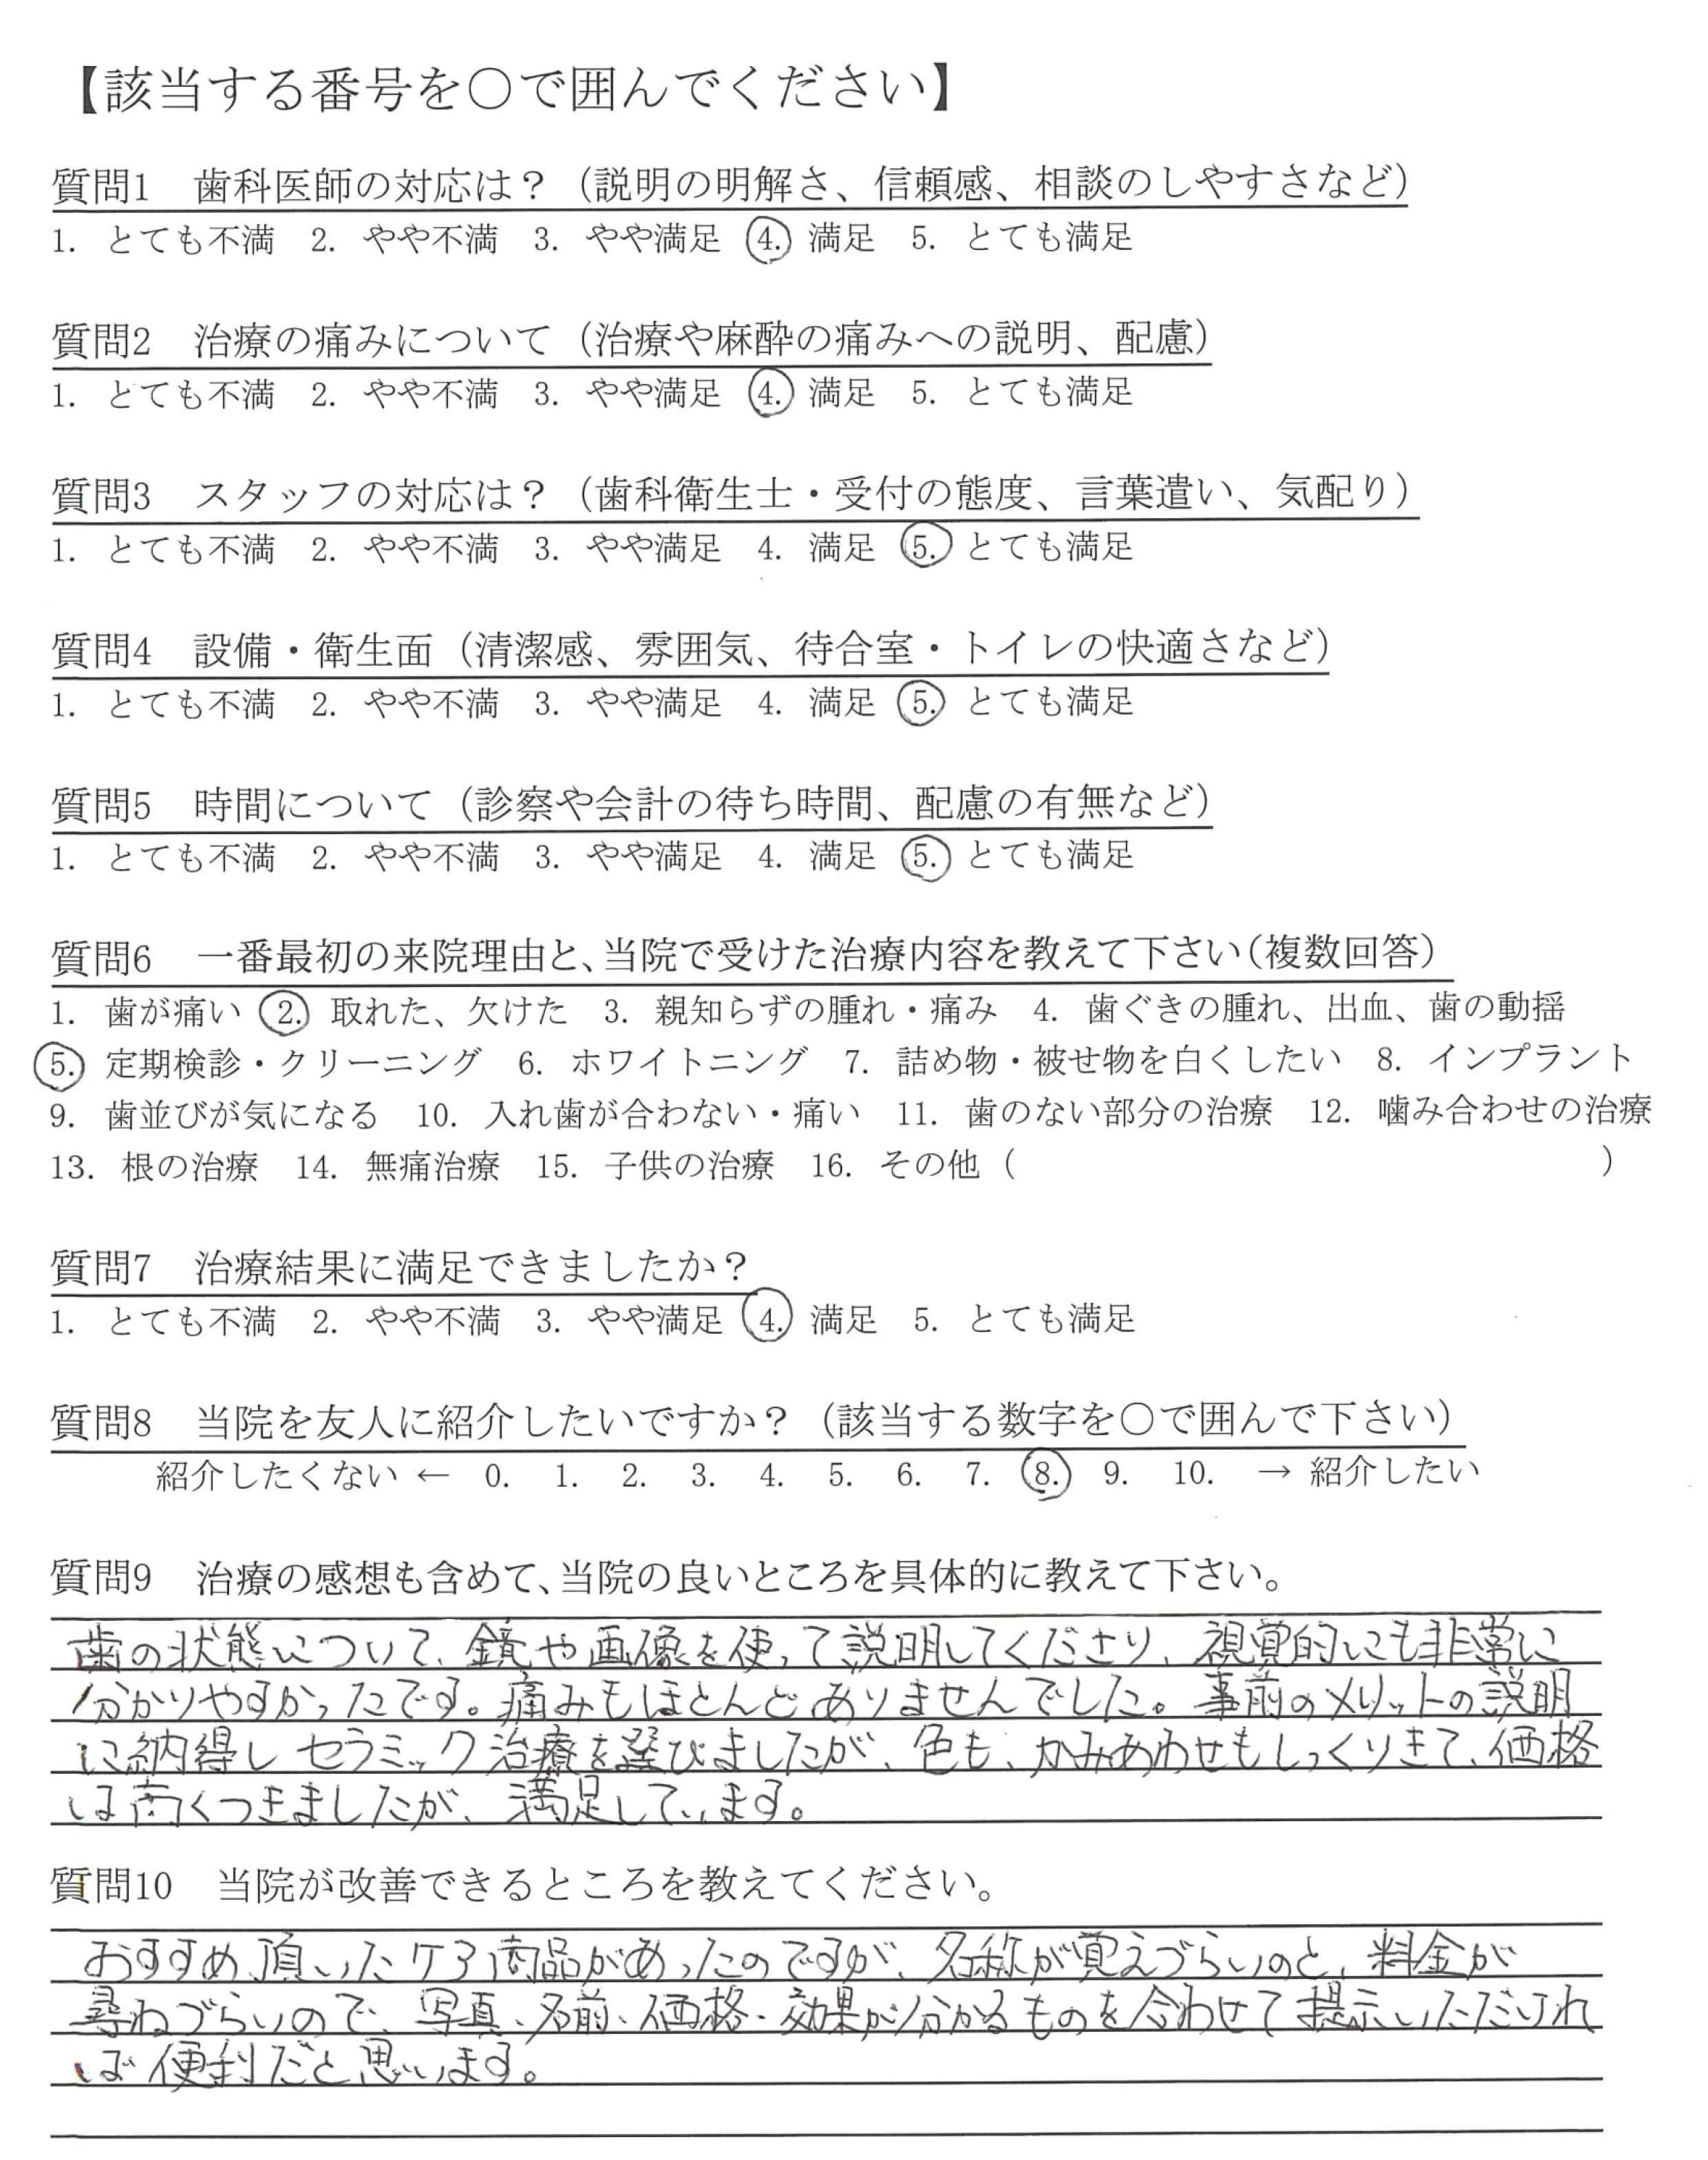 【該当する番号を〇で囲んでください】
質問1　歯科医師の対応は？（説明の明解さ、信頼感、相談のしやすさなど）
1. とても不満　2. やや不満　3. やや満足　4. 満足　5. とても満足
質問2　治療の痛みについて（治療や麻酔の痛みへの説明、配慮）
1. とても不満　2. やや不満　3. やや満足　4. 満足　5. とても満足
質問3　スタッフの対応は？（歯科衛生士・受付の態度、言葉遣い、気配り）
1. とても不満　2. やや不満　3. やや満足　4. 満足　5. とても満足
質問4　設備・衛生面（清潔感、雰囲気、待合室・トイレの快適さなど）
1. とても不満　2. やや不満　3. やや満足　4. 満足　5. とても満足
質問5　時間について（診察や会計の待ち時間、配慮の有無など）
1. とても不満　2. やや不満　3. やや満足　4. 満足　5. とても満足
質問6　一番最初の来院理由と、当院で受けた治療内容を教えて下さい（複数回答）
1. 歯が痛い　2. 取れた、欠けた　3. 親知らずの腫れ・痛み　4. 歯ぐきの腫れ、出血、歯の動揺
5. 定期検診・クリーニング　6. ホワイトニング　7. 詰め物・被せ物を白くしたい　8. インプラント
9. 歯並びが気になる　10. 入れ歯が合わない・痛い　11. 歯のない部分の治療　12. 噛み合わせの治療
13. 根の治療　14. 無痛治療　15. 子供の治療　16. その他（　　　　　　　　　　）
質問7　治療結果に満足できましたか？
1. とても不満　2. やや不満　3. やや満足　4. 満足　5. とても満足
質問8　当院を友人に紹介したいですか？（該当する数字を〇で囲んで下さい）
紹介したくない ← 0. 1. 2. 3. 4. 5. 6. 7. 8. 9. 10. → 紹介したい
質問9　治療の感想も含めて、当院の良いところを具体的に教えて下さい。
歯の状態について、鏡や画像を使って説明してくださり、視覚的にも非常に
分かりやすかったです。痛みもほとんどありませんでした。事前のメリットの説明
に納得しセラミック治療を選びましたが、色も、かみあわせもしっくりきて、価格
は高くつきましたが、満足しています。
質問10　当院が改善できるところを教えてください。
おすすめ頂いたケア商品があったのですが、名称が覚えづらいのと、料金が
尋ねづらいので、写真、名前、価格、効果が分かるものを合わせて提示いただけれ
ば便利だと思います。